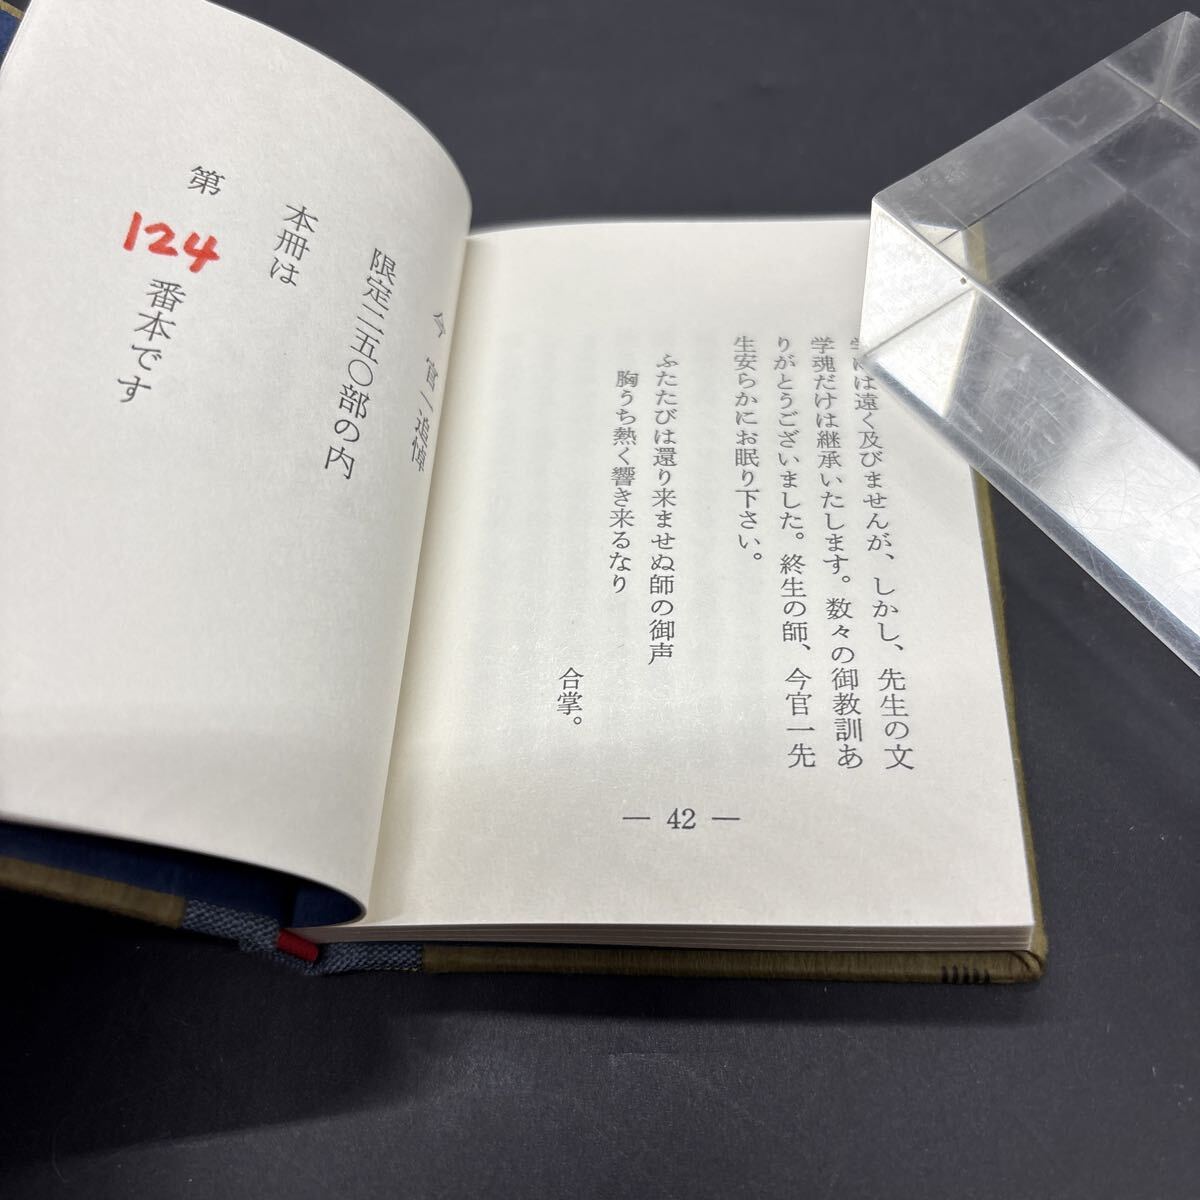 は遠く及びませんが、しかし、先生の文
学魂だけは継承いたします。数々の御教訓あ
りがとうございました。終生の師、今官一先
生安らかにお眠り下さい。
ふたたびは還り来ませぬ師の御声
胸うち熱く響き来るなり
合掌。
— 42 —
今官一追悼
限定二五〇部の内
本冊は
第124番本です